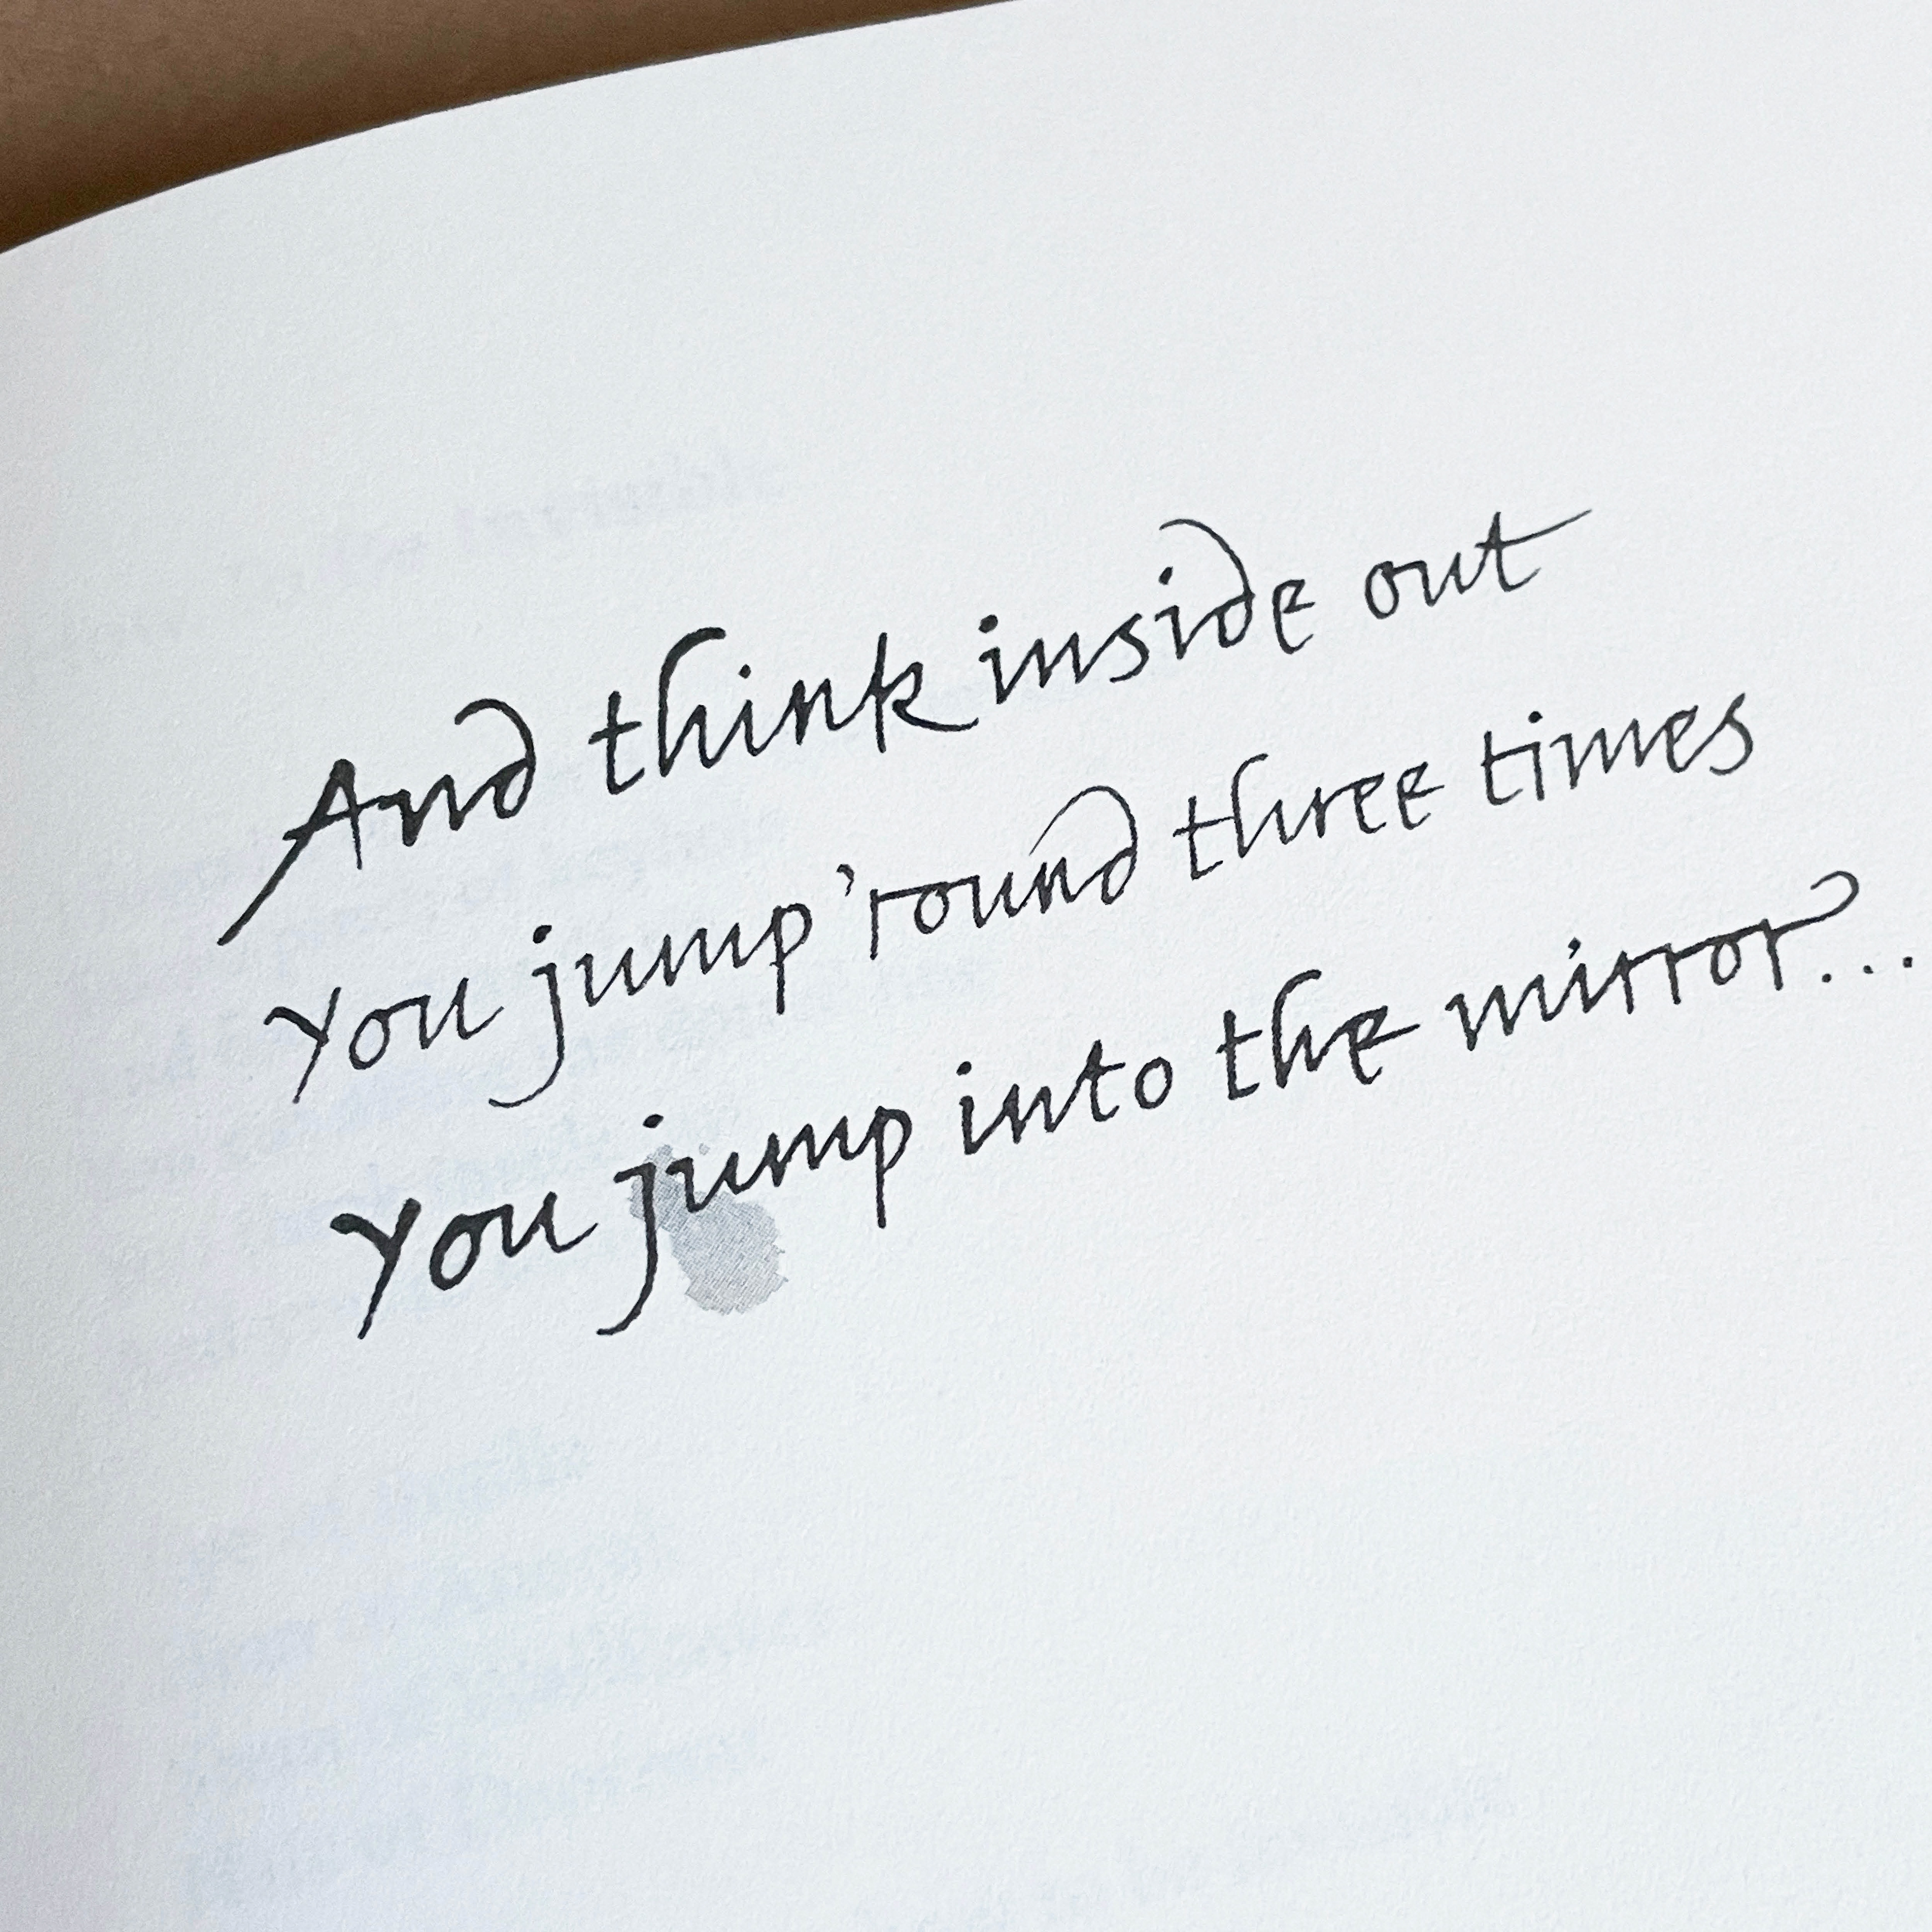 And think inside out
You jump 'round three times
You jump into the mirror...